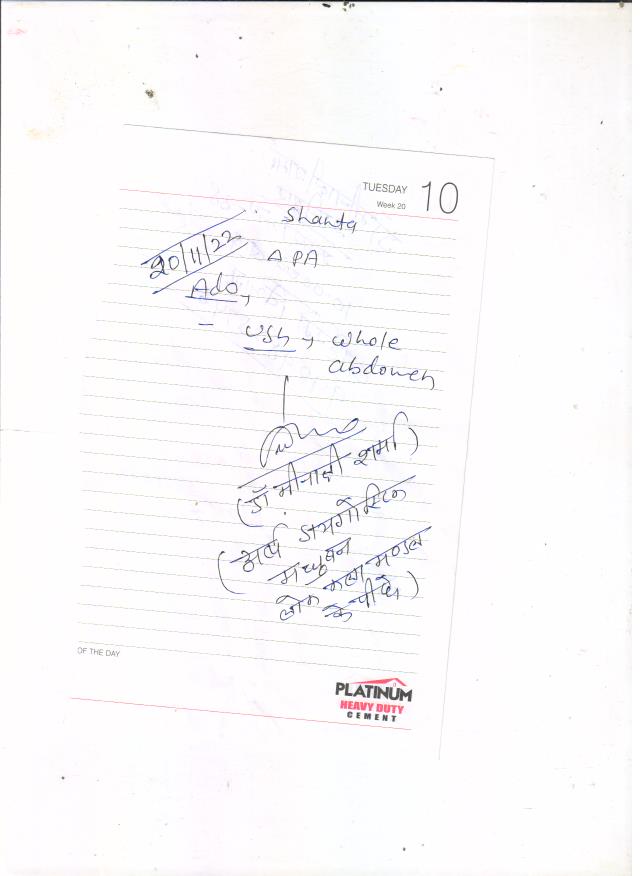 TUESDAY 10
Week 20
Shanta
20/11/22
Δ PA
Ado,
- USG, whole
abdomen
(डॉ मीनाक्षी शर्मा)
(अर्थ डायग्नोस्टिक
मधुबन
लोक कला मण्डल
के पीछे)
OF THE DAY
PLATINUM
HEAVY DUTY
CEMENT